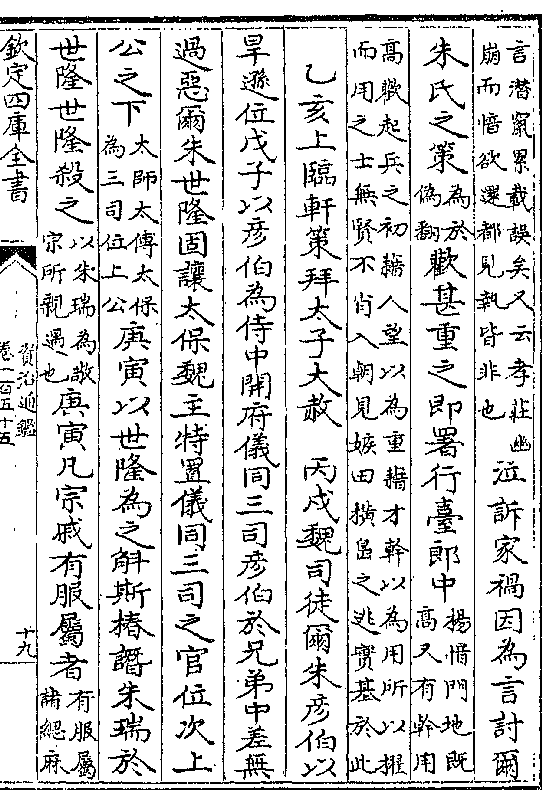 言潛竄累載誤矣又云孝莊幽
崩而愔欲還都見執皆非也
泣訴家禍因為言討爾
朱氏之策
為於
偽翻
歡甚重之即署行臺郎中
楊愔門地既
高又有幹用
高歡起兵之初藉人望以為重藉才幹以為用所以擢
而用之士無賢不肖入朝見嫉田橫島之逃實基於此
乙亥上臨軒策拜太子大赦　丙戌魏司徒爾朱彦伯以
旱遜位戊子以彦伯為侍中開府儀同三司彦伯於兄弟中差無
過惡爾朱世隆固讓太保魏主特置儀同三司之官位次上
公之下
太師太傅太保
為三司位上公
庚寅以世隆為之斛斯椿譖朱瑞於
世隆世隆殺之
以朱瑞為敬
宗所親遇也
庚寅凡宗戚有服屬者
有服屬
諸緦麻
欽定四庫全書
資治通鑑
卷一百五十五
十九